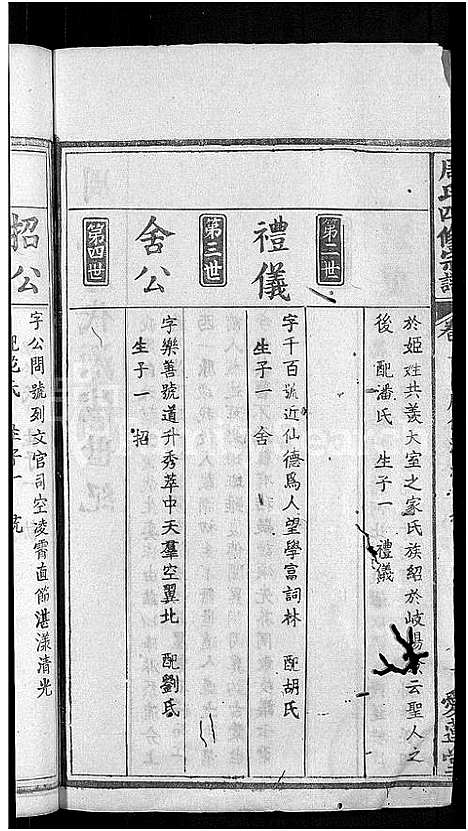 周氏四修宗譜
於姬姓共羨大室之家氏族紹於岐陽 云聖人之
後 配潘氏 生子一 禮儀
第二世
禮儀
字千百號近仙德爲人望學富詞林 配胡氏
生子一 舍
第三世
舍公
字樂善號道升秀萃中天羣空翼北 配劉氏
生子一 招
第四世
招公
字公問號列文官司空凌霄直節湛漾清光